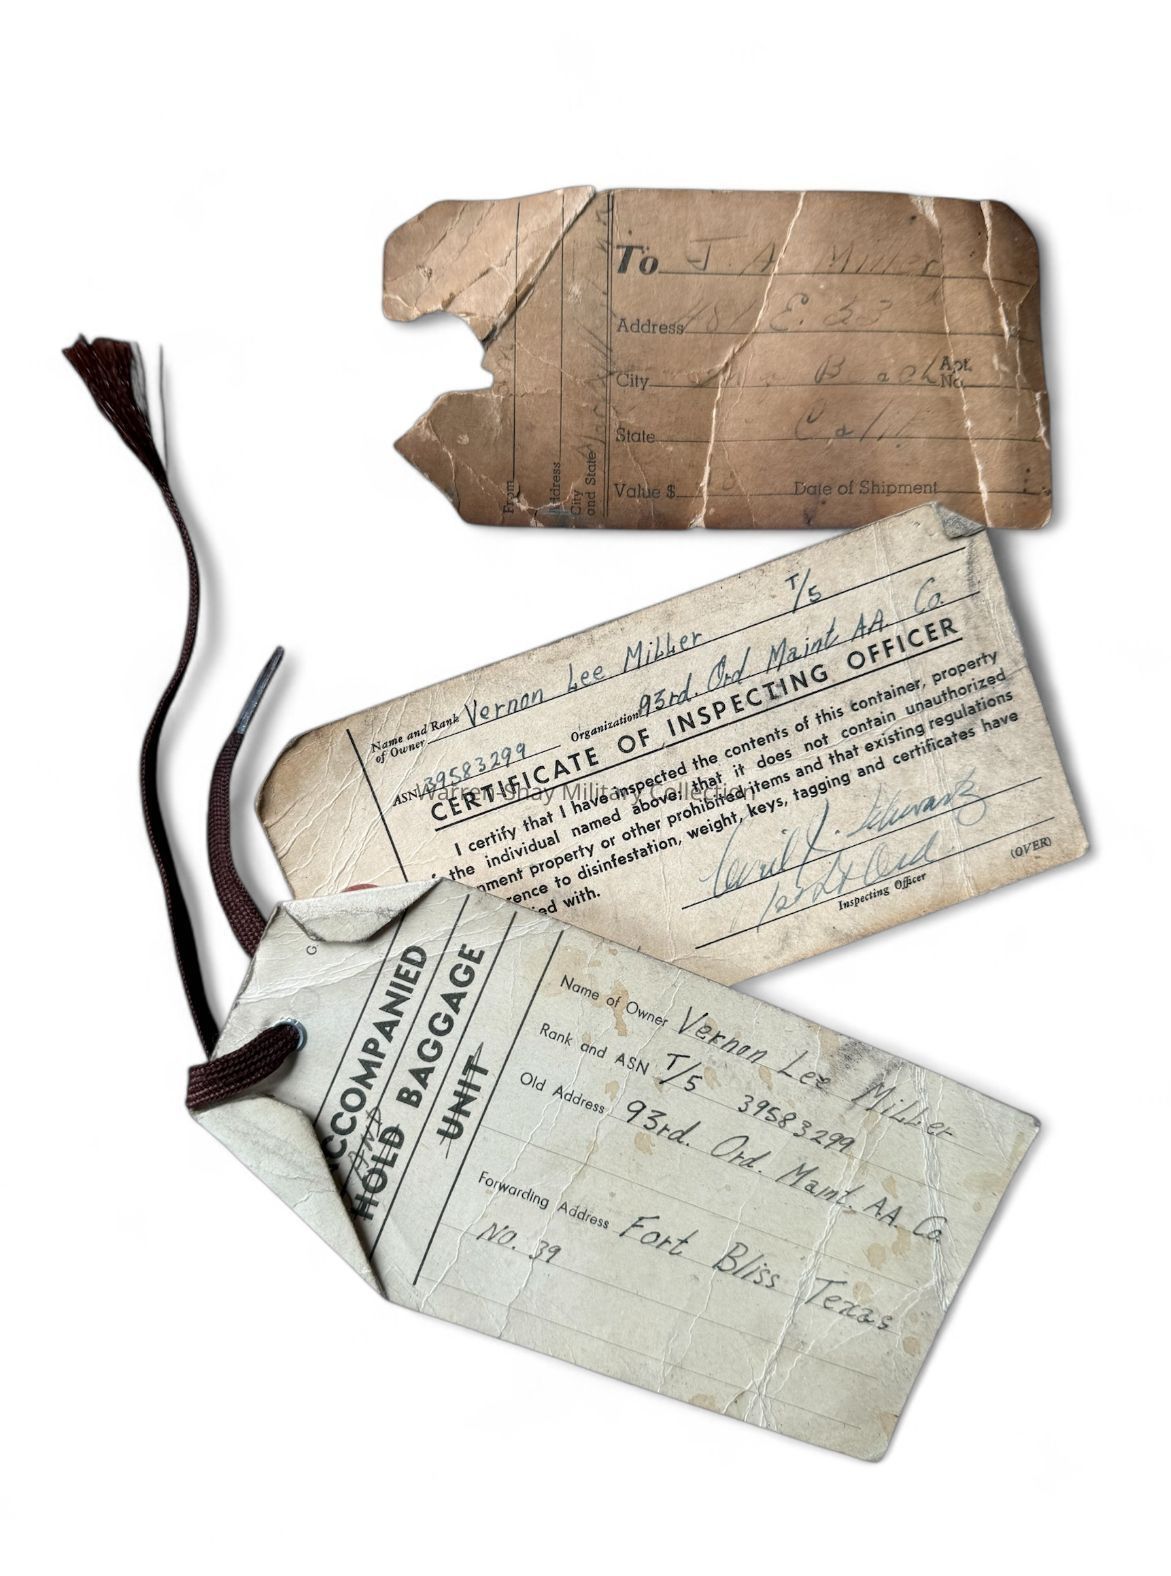 To J. A. Miller
Address 181 E. 53
City Beach Apt. No.
State Calif.
Value $ Date of Shipment
From
Address
City and State
T/5
Name and Rank of Owner Vernon Lee Miller
ASN 39583299 Organization 93rd. Ord Maint AA. Co.
CERTIFICATE OF INSPECTING OFFICER
I certify that I have inspected the contents of this container, property
the individual named above; that it does not contain unauthorized
nment property or other prohibited items and that existing regulations
rence to disinfestation, weight, keys, tagging and certificates have
ed with.
Schwartz
1st Lt Ord
Inspecting Officer
(OVER)
Warren Shay Military Collection
CCOMPANIED
HAND
HOLD BAGGAGE
UNIT
Name of Owner Vernon Lee Miller
Rank and ASN T/5 39583299
Old Address 93rd. Ord. Maint. AA. Co.
Forwarding Address Fort Bliss Texas
NO. 39